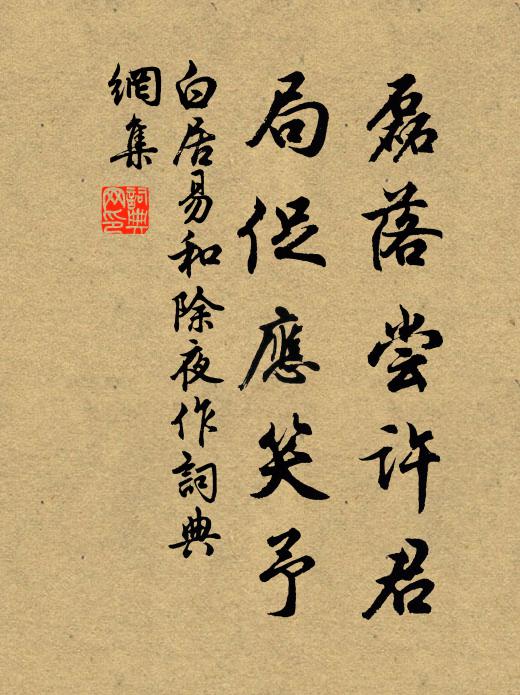 磊落尝許君
局促應笑予
白居易和除夜作詞典
網集
詞典
网印